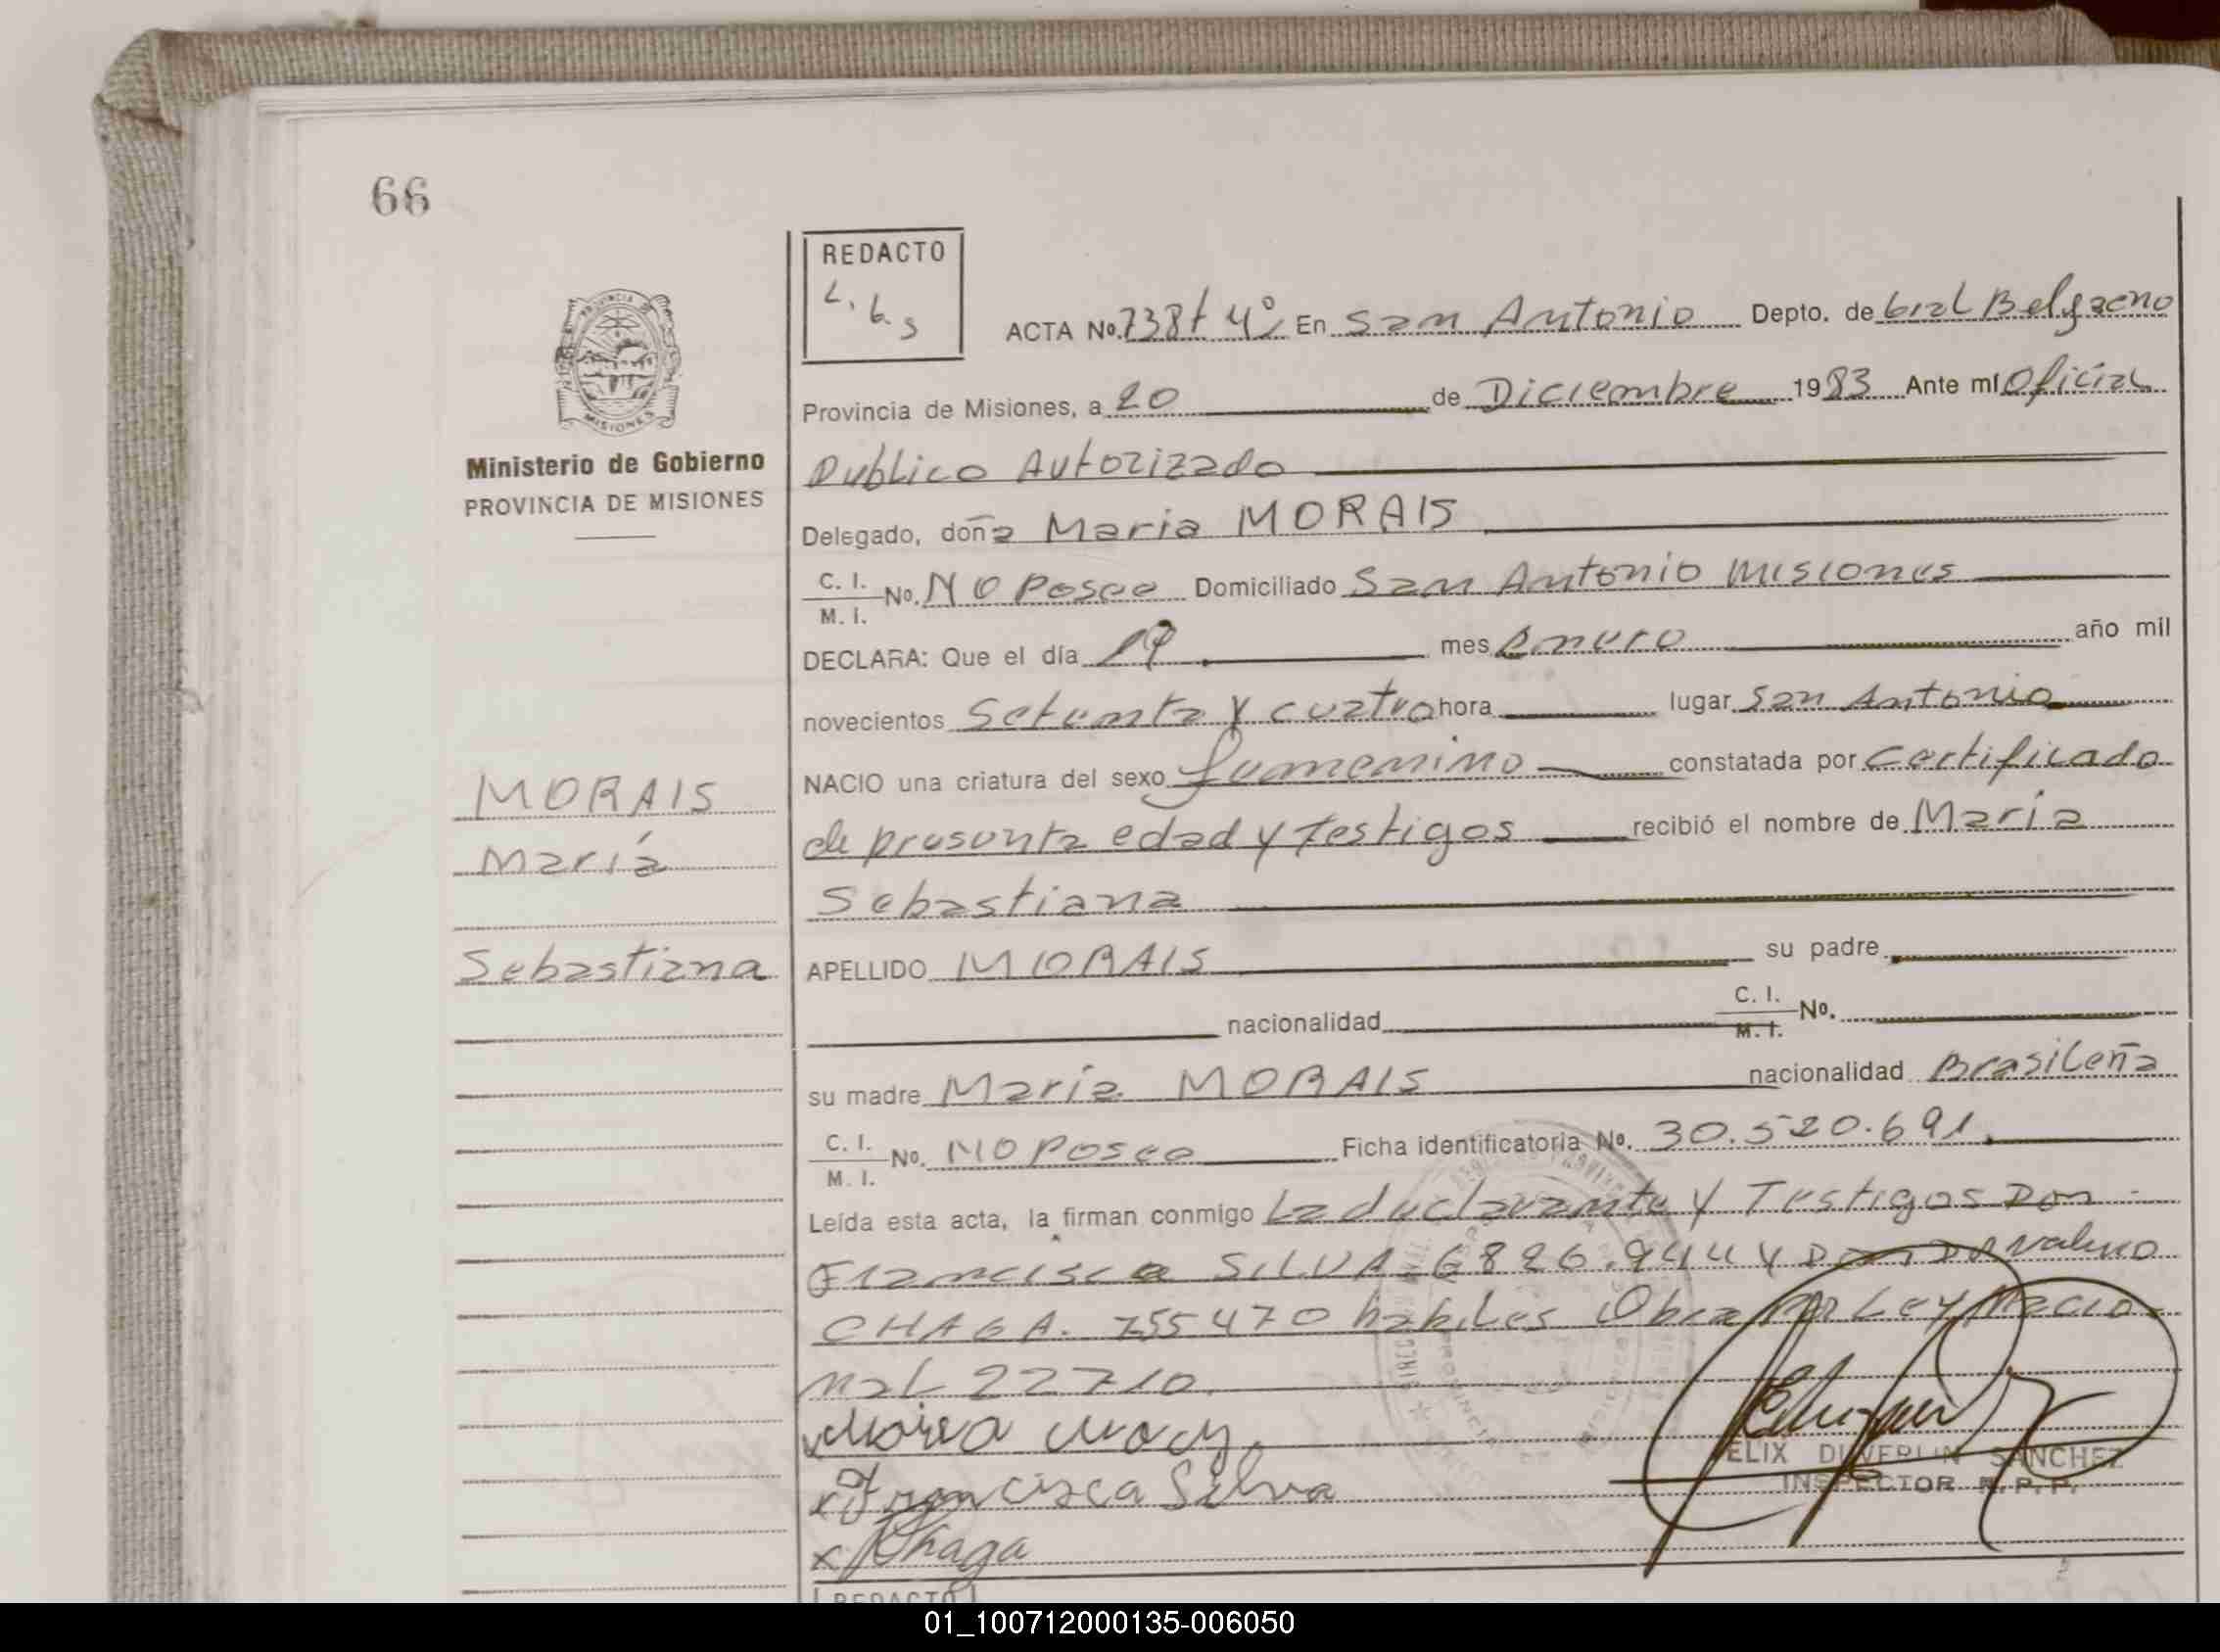 66
REDACTO
L. b. s
ACTA No. 738 t 4º En San Antonio Depto. de Gral Belgrano
Provincia de Misiones, a 20 de Diciembre 1983 Ante mí Oficial
Publico Autorizado
Delegado, doña Maria MORAIS
C. I. M. I. No. NO Posee Domiciliado San Antonio Misiones
DECLARA: Que el día mes Enero año mil
novecientos Setenta y cuatro hora lugar San Antonio
NACIO una criatura del sexo femenino constatada por Certificado
de presunta edad y Testigos recibió el nombre de Maria
Sebastiana
APELLIDO MORAIS su padre
nacionalidad C. I. M. I. No.
su madre Maria MORAIS nacionalidad Brasileña
C. I. M. I. No. NO Posee Ficha identificatoria No. 30.520.691
Leída esta acta, la firman conmigo La declarante y Testigos Don
Francisca SILVA 6826.944 y Don
CHAGA. 755470 habiles Obra por Ley Nacio-
nal 22710.
Francisca Silva
x Chaga
FELIX DUVERLIN SANCHEZ
INSPECTOR R. P. P.
PROVINCIA DE
MISIONES
Ministerio de Gobierno
PROVINCIA DE MISIONES
MORAIS
María
Sebastiana
REDACTO
01_100712000135-006050